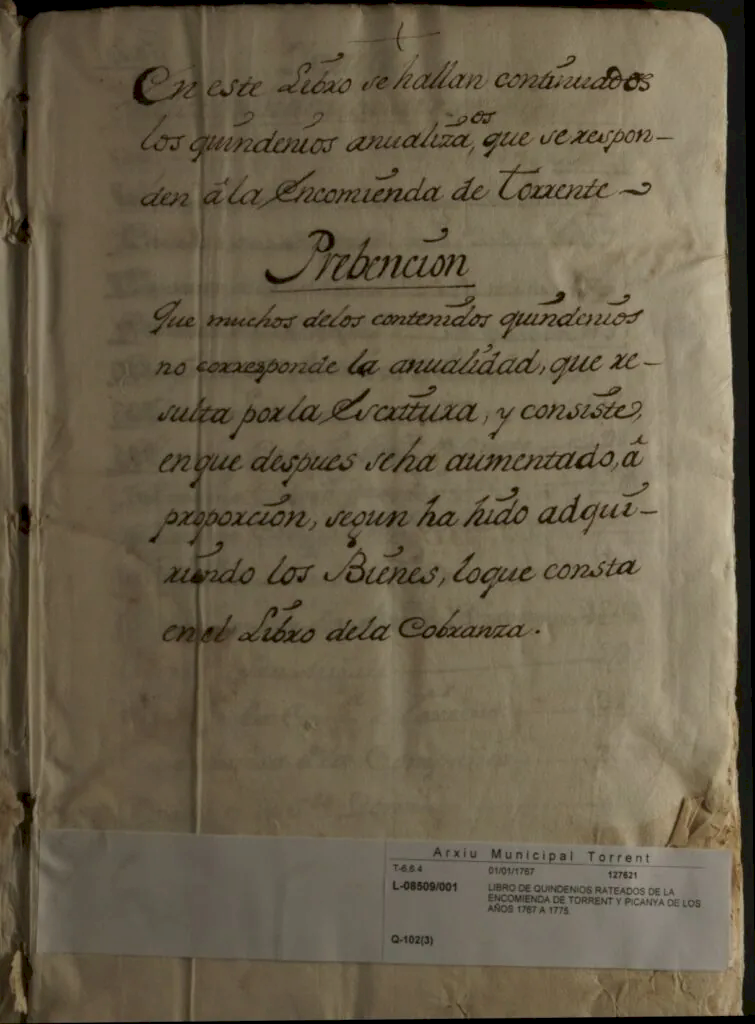 En este Libro se hallan continuados
los quindenios anualizaos, que se respon-
den â la Encomienda de Torrente
Prebencion
Que muchos delos contenidos quindenios
no corresponde la anualidad, que re-
sulta por la Escritura, y consiste,
enque despues seha aumentado, â
proporcion, segun ha hido adqui-
riendo los Bienes, loque consta
enel Libro dela Cobranza.
Arxiu Municipal Torrent
T-6.6.4 01/01/1767 127621
L-08509/001 LIBRO DE QUINDENIOS RATEADOS DE LA
ENCOMIENDA DE TORRENT Y PICANYA DE LOS
AÑOS 1767 A 1775.
Q-102(3)